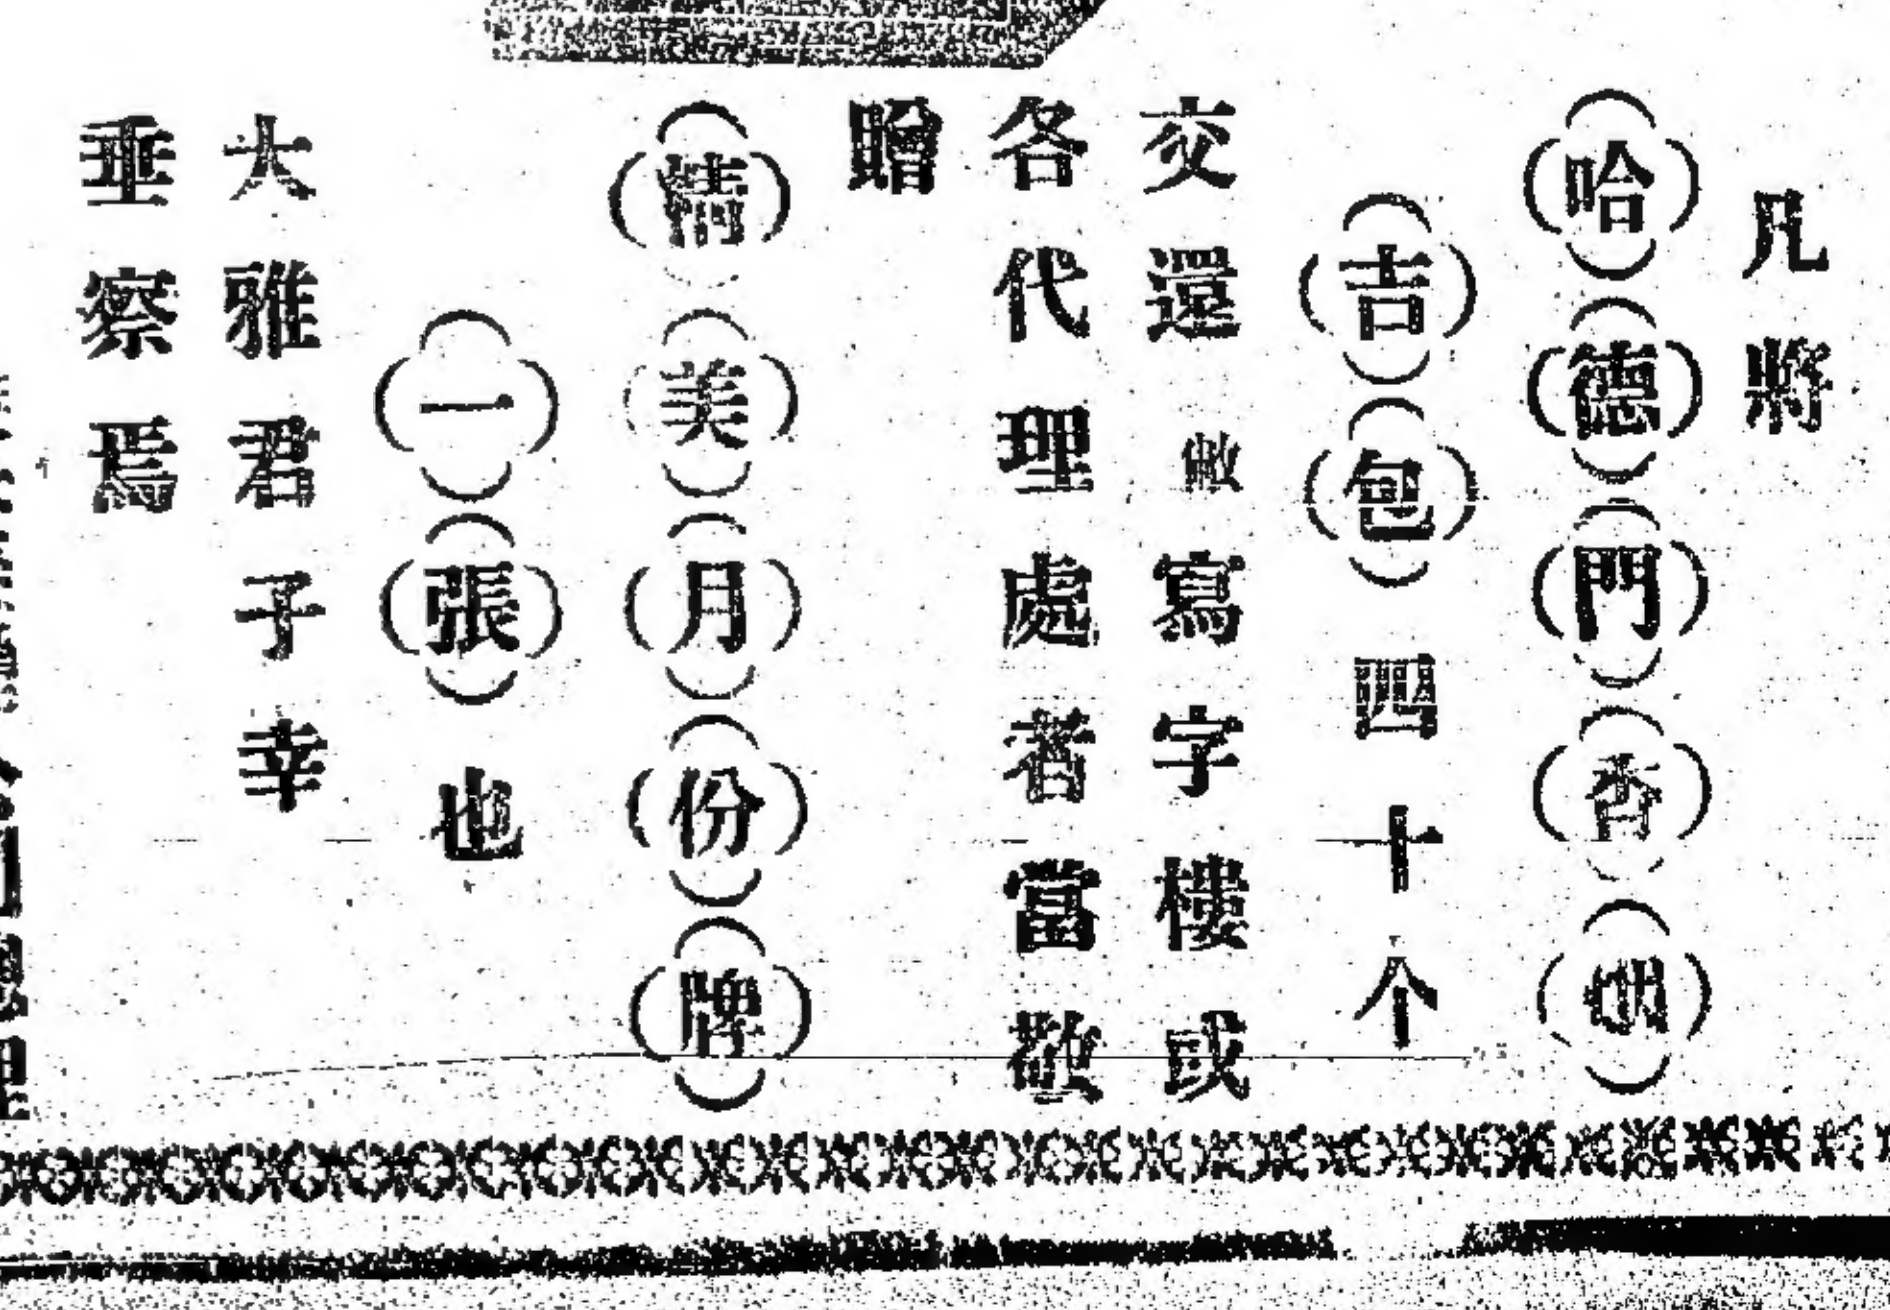 凡將
哈德門香烟
吉包四十个
交還敝寫字樓或
各代理處者當敬
贈
精美月份牌
一張也
大雅君子幸
垂察焉